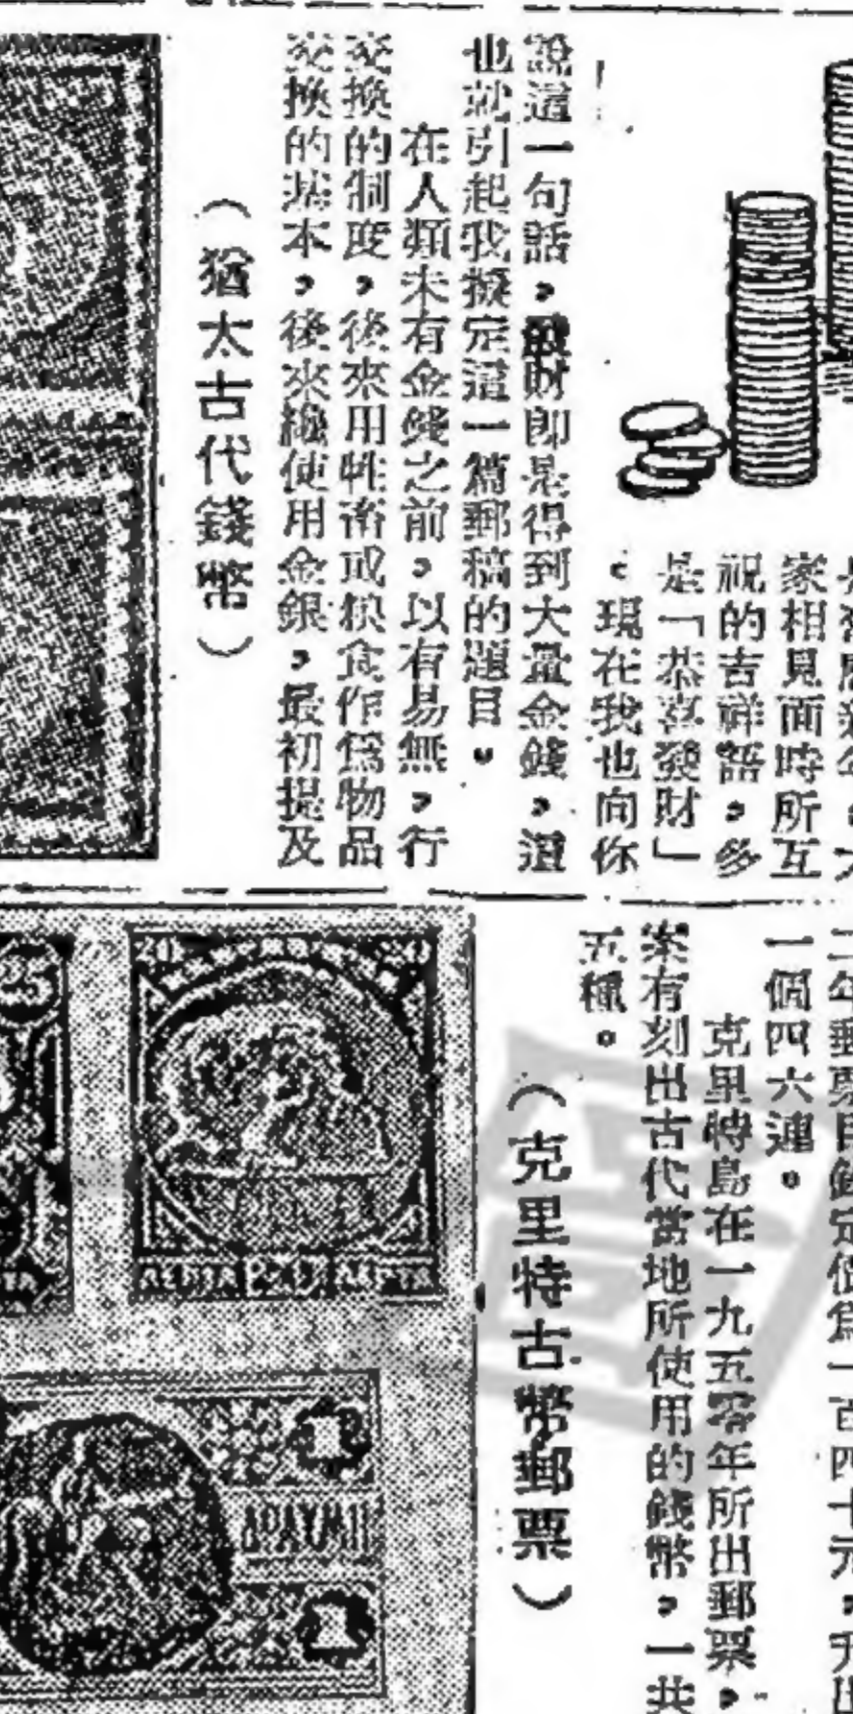 家相見面時所互
祝的吉祥語，多
是「恭喜發財」
。現在我也向你
說這一句話，發財即是得到大量金錢，這
也就引起我擬定這一篇郵稿的題目。
在人類未有金錢之前，以有易無，行
交換的制度，後來用牲畜或粮食作爲物品
交換的基本，後來纔使用金銀，最初提及
（猶太古代錢幣）
二年郵票目錄定價爲一百四十元，
一個四六連。
克里特島在一九五零年所出郵票，
案有刻出古代當地所使用的錢幣，一共
五種。
（克里特古幣郵票）
25
20 20
ΔΡΑΧΜΗ
1
1